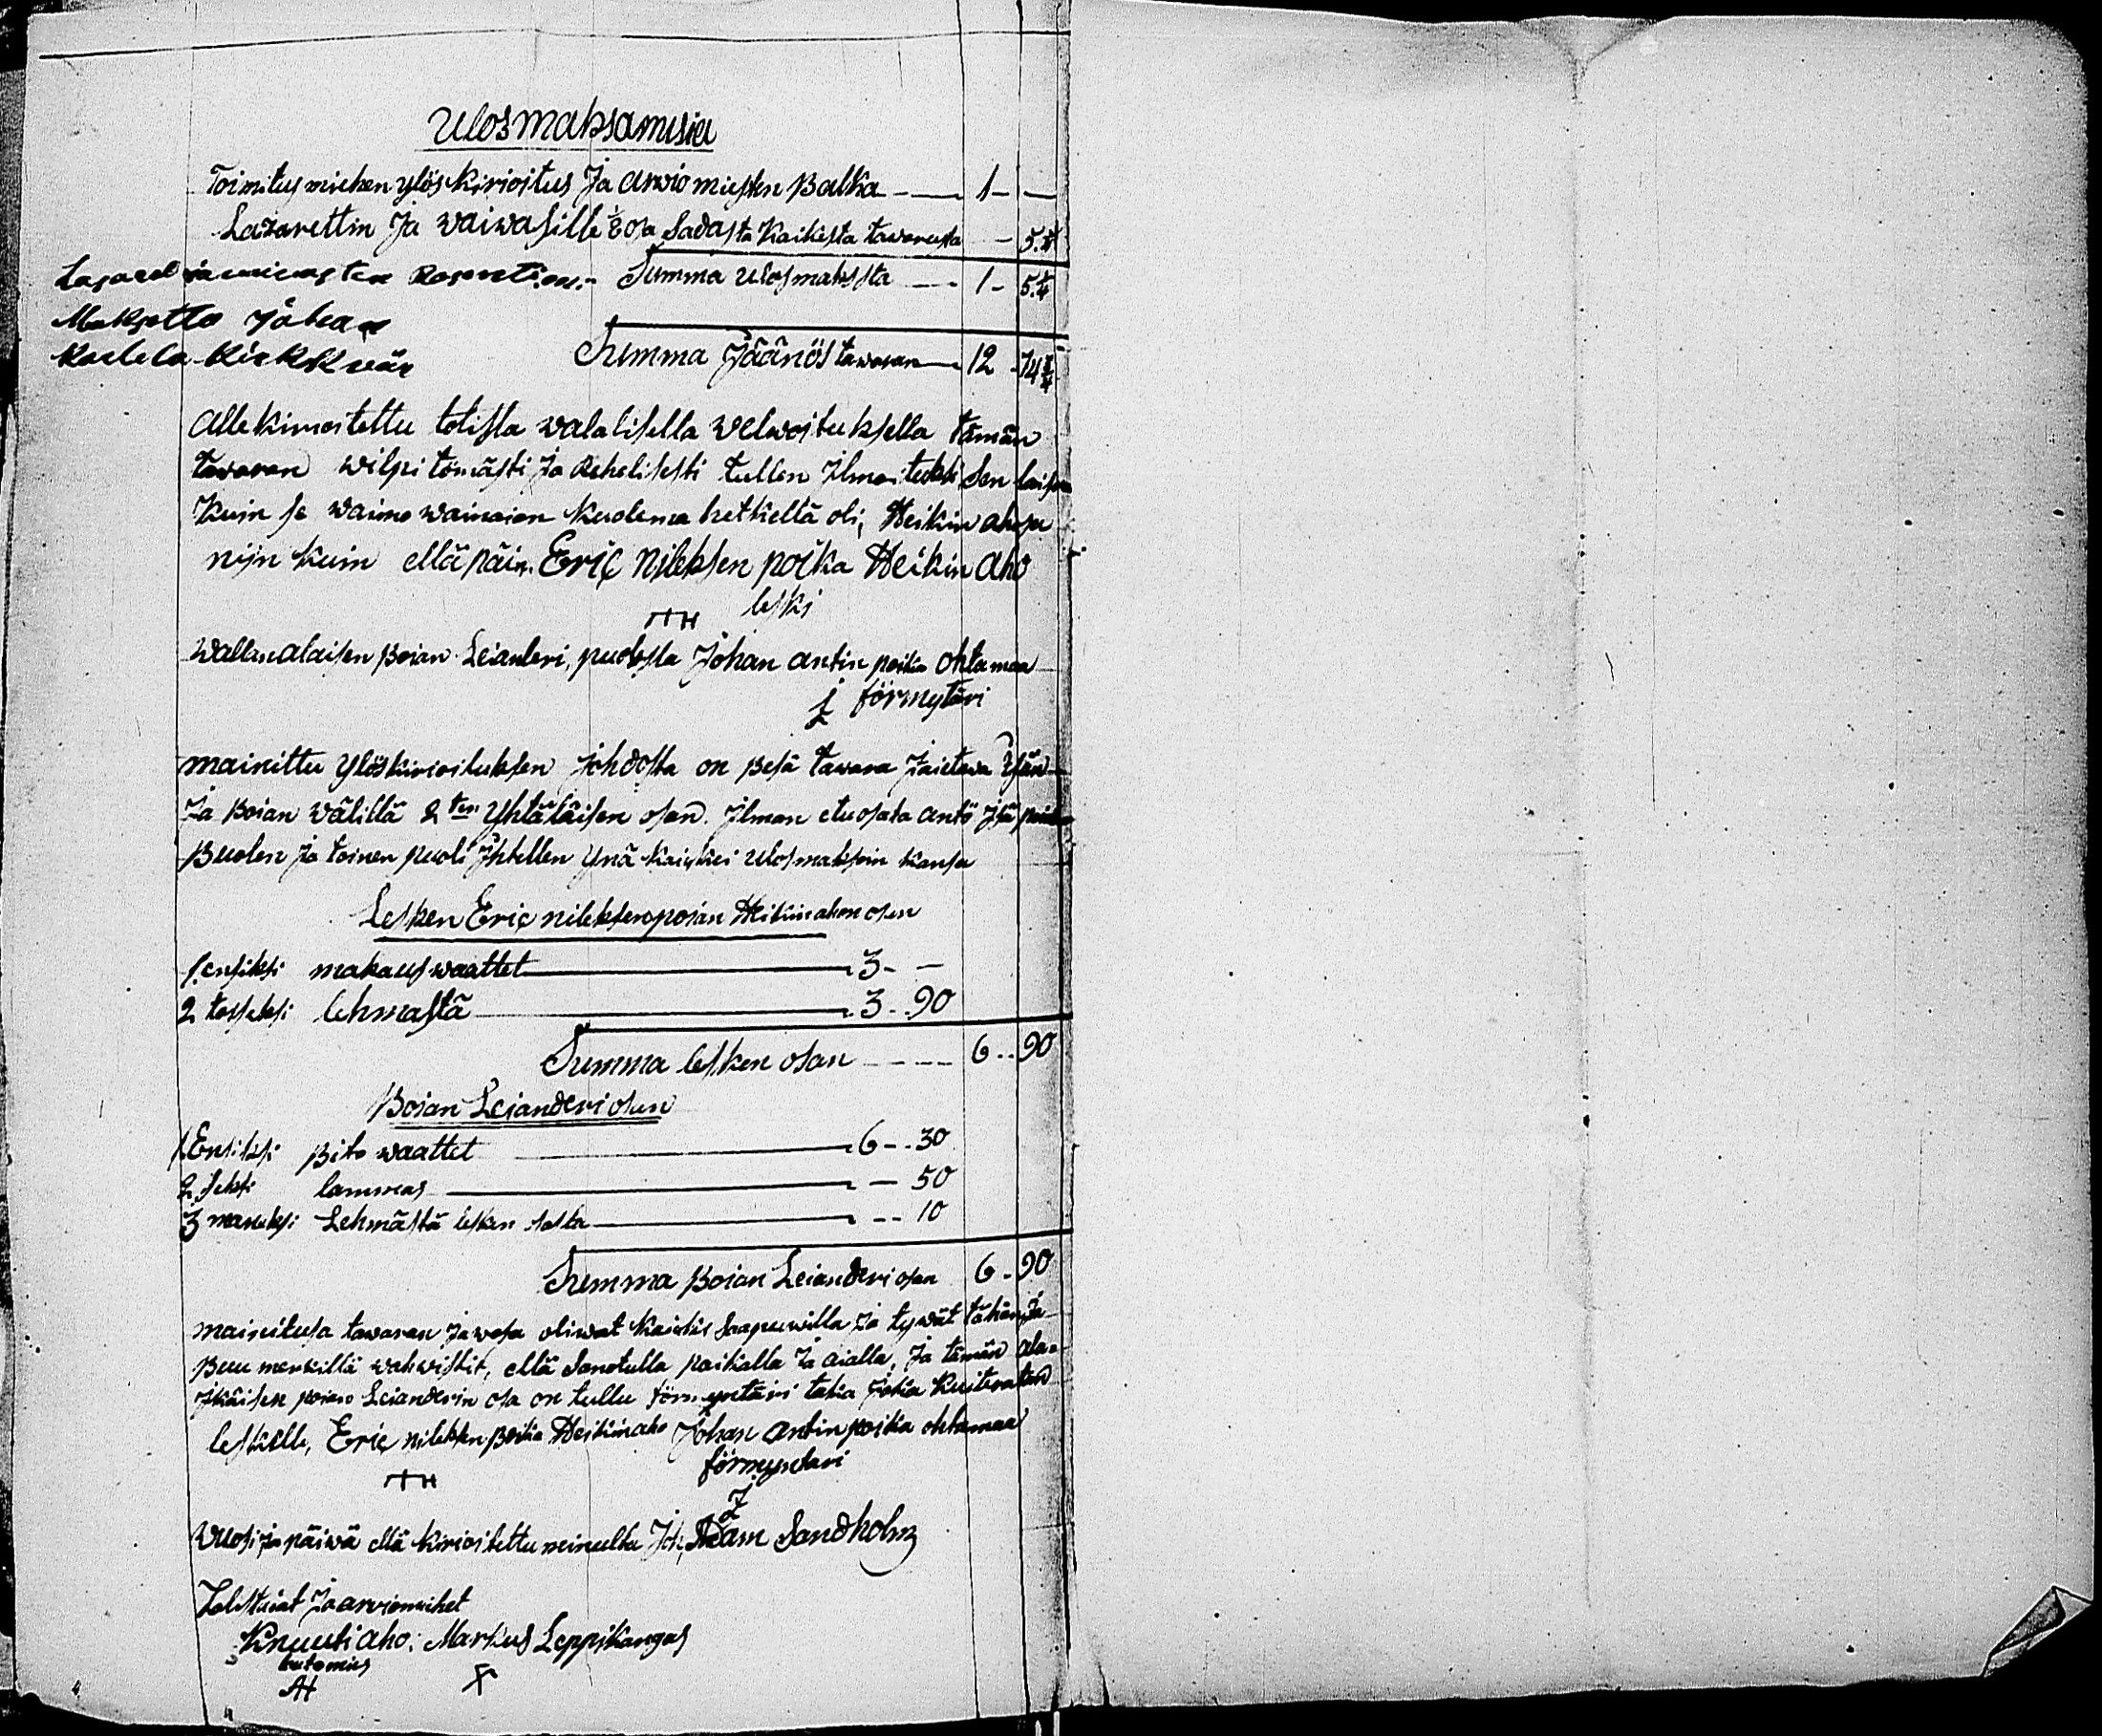 Ulosmaksamisia
Toimitus miehen ylös kirioitus Ja arwio miesten Balka — 1 - —
Lazarettin Ja waiwasille 1/8 osa Sadasta Kaikesta tawarasta - 5.1/4
Summa Ulosmaksista — 1 - 5.1/4
Lasareti ja waiwasten Rosentti on
Maksettu Jåhan
Kaelela Kirkkwär
Summa Jäänös tawaran — 12 - 74 3/4
Alle kirioitettu totisella walalisella welwoituksella tämän
tawaran wilpi tömästi Ja Rehelisesti tullen Ilmoitetuksi Sen laisna
Kuin se waimo wainaian kuolema hetkellä oli, Heikin ahosa
nijn kuin ellä päin. Eriç Nileksen poika Heikin Aho
leski
HH
Wallanalaisen Boian Leianteri, puolesta Johan antin poika Ohtamaa
förmytäri
mainittu Ylöskirioituksen johdosta on Pesä tawara Jaietawa Isän
Ja Boian wälillä 2 ten Yhtäläisen osan. Ilman etuosata antö Isä poian
Buolen Ja toinen puoli Ihtellen Ynä kaickei Ulosmaksoin kansa
Lesken Eriç nileksenpoian Heikin ahon osan
1. ensiksi makaus waattet — 3 - —
2 toiseksi lehmästä — 3 - 90
Summa lesken osan — 6 - 90
Boian Leianderi osan
1 Ensiksi Bito waattet — 6 - 30
2 seksi lammas — - 50
3 maneksi Lehmästä lesken osasta — - 10
Summa Boian Leianderi osan 6 - 90
mainitusa tawaran Jawosa oliwat kaickis Saapuwilla Ja tywät tähän, Ja
Buu merkillä wahwistit, ellä Sanotulla paikalla Ja aialla, Ja tämän ala-
Ikäisen poian Leianderin osa on tullu förmyntäri taka Joka Kuiteratan
leskelle, Eriç nileksen Boika Heikinaho Johan antin poika ohtamaa
förmyndari
HH
Wuosi Ja päiwä ellä kirioitettu minulta Joh, Adam Sandholm
Todistaiat Ja arviomiehet
Knuuti aho. Markus Leppikangas
lautamies
AH X